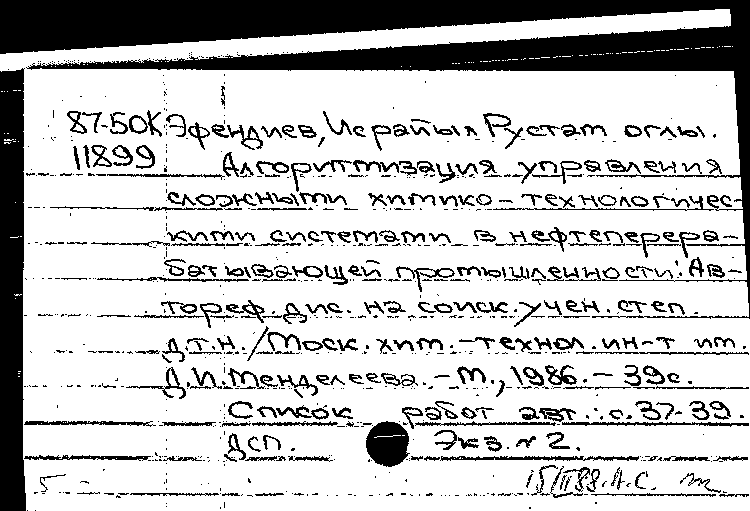 87-50К Эфендиев, Исрайыл Рустам оглы.
11899 Алгоритмизация управления
сложными химико-технологичес-
кими системами в нефтеперера-
батывающей промышленности: Ав-
тореф. дис. на соиск. учен. степ.
д.т.н. / Моск. хим.-технол. ин-т им.
Д.И. Менделеева. - М., 1986. - 39с.
Список работ авт.: с. 37-39.
ДСП. Экз. № 2.
5 - 15/II 88. А.С.